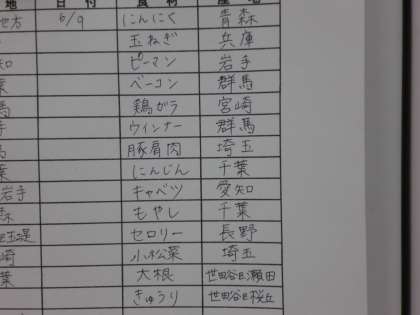 地 日付 食材 産地
地方 6/9 にんにく 青森
玉ねぎ 兵庫
知 ピーマン 岩手
葉 ベーコン 群馬
馬 鶏ガラ 宮崎
手 ウィンナー 群馬
馬 豚肩肉 埼玉
葉 にんじん 千葉
岩手 キャベツ 愛知
森 もやし 千葉
セロリー 長野
崎 小松菜 埼玉
葉 大根 世田谷区瀬田
きゅうり 世田谷区桜丘